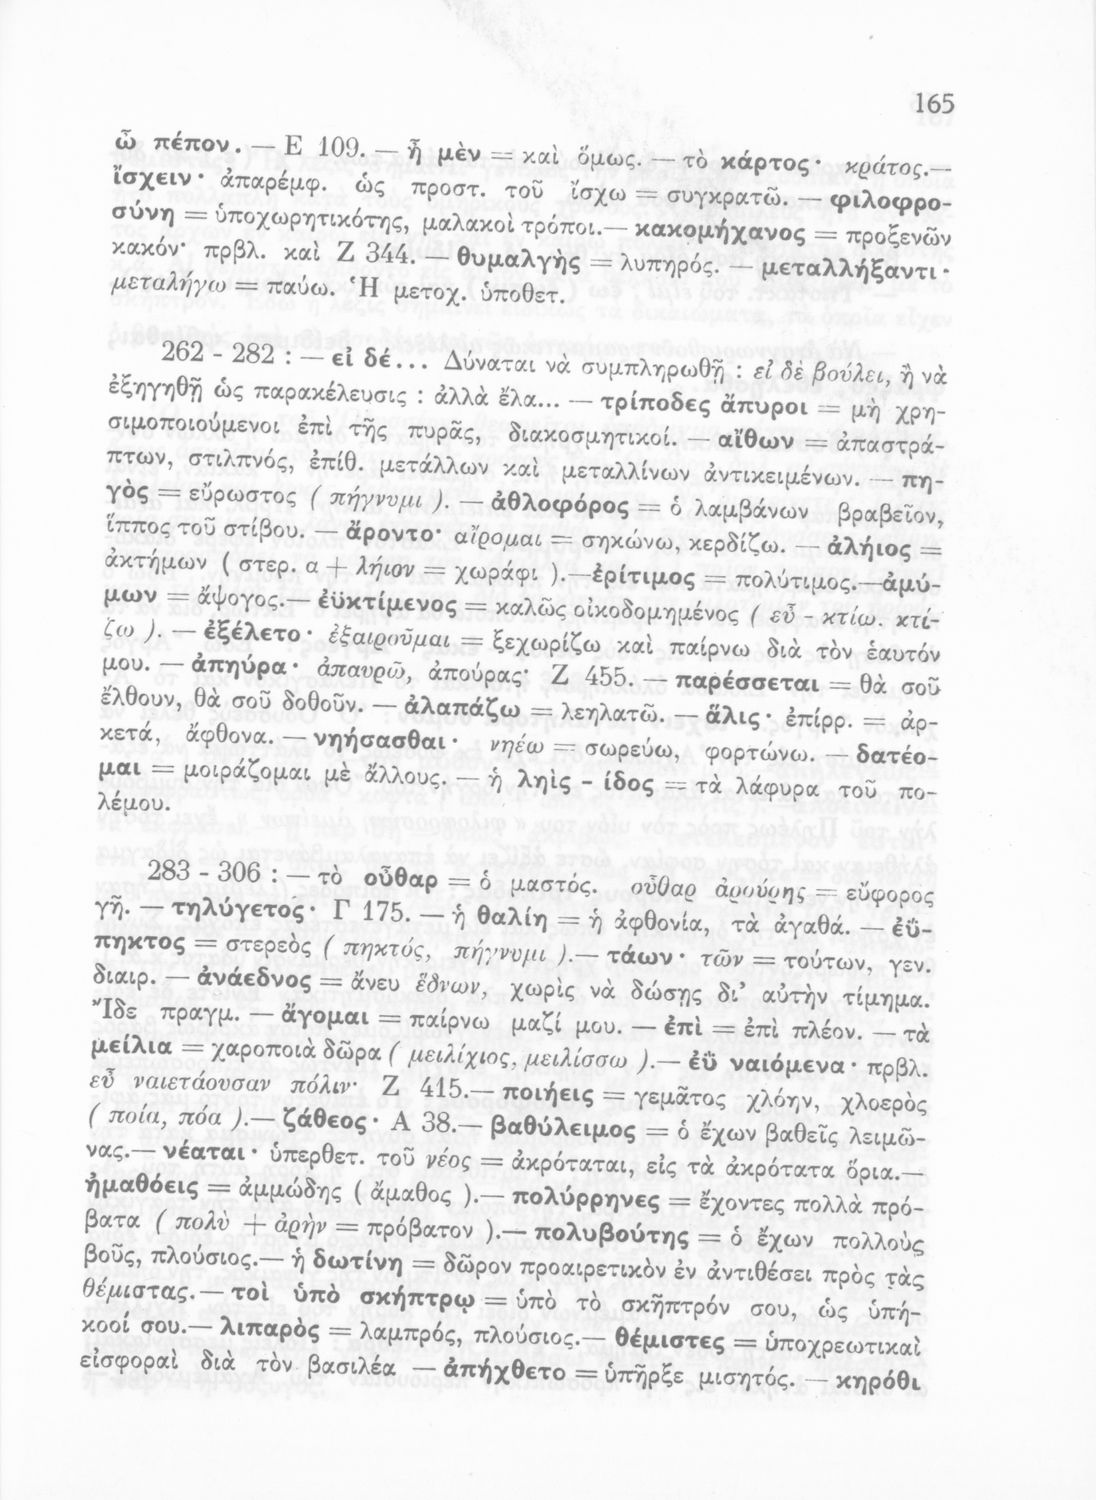 165
ὦ πέπον. — Ε 109. — ἦ μὲν = καὶ ὅμως. — τὸ κάρτος· κράτος.—
ἴσχειν· ἀπαρέμφ. ὡς προστ. τοῦ ἴσχω = συγκρατῶ. — φιλοφρο-
σύνη = ὑποχωρητικότης, μαλακοὶ τρόποι.— κακομήχανος = προξενῶν
κακόν· πρβλ. καὶ Ζ 344. — θυμαλγὴς = λυπηρός. — μεταλλήξαντι·
μεταλήγω = παύω. Ἡ μετοχ. ὑποθετ.
262 - 282 : — εἰ δέ... Δύναται νὰ συμπληρωθῇ : εἰ δὲ βούλει, ἢ νὰ
ἐξηγηθῇ ὡς παρακέλευσις : ἀλλὰ ἔλα... — τρίποδες ἄπυροι = μὴ χρη-
σιμοποιούμενοι ἐπὶ τῆς πυρᾶς, διακοσμητικοί. — αἴθων = ἀπαστρά-
πτων, στιλπνός, ἐπίθ. μετάλλων καὶ μεταλλίνων ἀντικειμένων. — πη-
γὸς = εὔρωστος ( πήγνυμι ). — ἀθλοφόρος = ὁ λαμβάνων βραβεῖον,
ἵππος τοῦ στίβου. — ἄροντο· αἴρομαι = σηκώνω, κερδίζω. — ἀλήιος =
ἀκτήμων ( στερ. α + λήιον = χωράφι ).—ἐρίτιμος = πολύτιμος.—ἀμύ-
μων = ἄψογος.— ἐϋκτίμενος = καλῶς οἰκοδομημένος ( εὖ - κτίω. κτί-
ζω ). — ἐξέλετο· ἐξαιροῦμαι = ξεχωρίζω καὶ παίρνω διὰ τὸν ἑαυτόν
μου. — ἀπηύρα· ἀπαυρῶ, ἀπούρας· Ζ 455. — παρέσσεται = θὰ σοῦ
ἔλθουν, θὰ σοῦ δοθοῦν. — ἀλαπάζω = λεηλατῶ. — ἅλις· ἐπίρρ. = ἀρ-
κετά, ἄφθονα. — νηήσασθαι· νηέω = σωρεύω, φορτώνω. — δατέο-
μαι = μοιράζομαι μὲ ἄλλους. — ἡ ληὶς - ίδος = τὰ λάφυρα τοῦ πο-
λέμου.
283 - 306 : — τὸ οὖθαρ = ὁ μαστός. οὖθαρ ἀρούρης = εὔφορος
γῆ. — τηλύγετος· Γ 175. — ἡ θαλίη = ἡ ἀφθονία, τὰ ἀγαθά. — ἐΰ-
πηκτος = στερεὸς ( πηκτός, πήγνυμι ).— τάων· τῶν = τούτων, γεν.
διαιρ. — ἀνάεδνος = ἄνευ ἕδνων, χωρὶς νὰ δώσῃς δι’ αὐτὴν τίμημα.
Ἴδε πραγμ. — ἄγομαι = παίρνω μαζί μου. — ἐπὶ = ἐπὶ πλέον. — τὰ
μείλια = χαροποιὰ δῶρα ( μειλίχιος, μειλίσσω ).— ἐῢ ναιόμενα· πρβλ.
εὖ ναιετάουσαν πόλιν· Ζ 415.— ποιήεις = γεμᾶτος χλόην, χλοερὸς
( ποία, πόα ).— ζάθεος· Α 38.— βαθύλειμος = ὁ ἔχων βαθεῖς λειμῶ-
νας.— νέαται· ὑπερθετ. τοῦ νέος = ἀκρόταται, εἰς τὰ ἀκρότατα ὅρια.—
ἠμαθόεις = ἀμμώδης ( ἄμαθος ).— πολύρρηνες = ἔχοντες πολλὰ πρό-
βατα ( πολὺ + ἀρὴν = πρόβατον ).— πολυβούτης = ὁ ἔχων πολλοὺς
βοῦς, πλούσιος.— ἡ δωτίνη = δῶρον προαιρετικὸν ἐν ἀντιθέσει πρὸς τὰς
θέμιστας.— τοὶ ὑπὸ σκήπτρῳ = ὑπὸ τὸ σκῆπτρόν σου, ὡς ὑπή-
κοοί σου.— λιπαρὸς = λαμπρός, πλούσιος.— θέμιστες = ὑποχρεωτικαὶ
εἰσφοραὶ διὰ τὸν βασιλέα — ἀπήχθετο = ὑπῆρξε μισητός. — κηρόθι